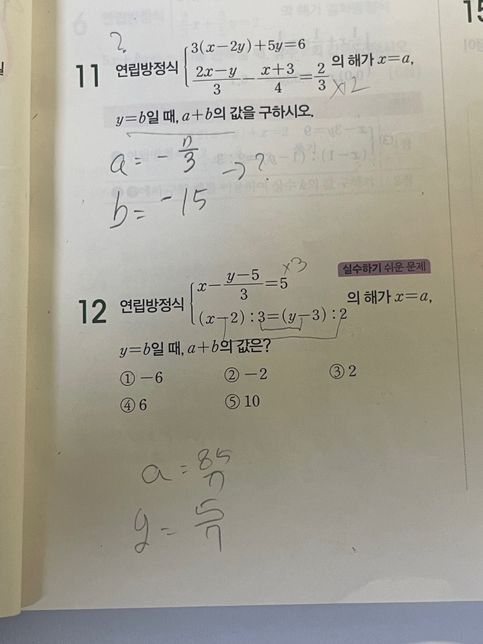 ?
11 연립방정식 { 3(x-2y)+5y=6
(2x-y)/3 - (x+3)/4 = 2/3 의 해가 x=a, ×2
y=b일 때, a+b의 값을 구하시오.
b = -15
→?
실수하기 쉬운 문제
12 연립방정식 { x - (y-5)/3 = 5 ×3
(x-2) : 3=(y-3) : 2 의 해가 x=a,
y=b일 때, a+b의 값은?
① -6 ② -2 ③ 2
④ 6 ⑤ 10
15